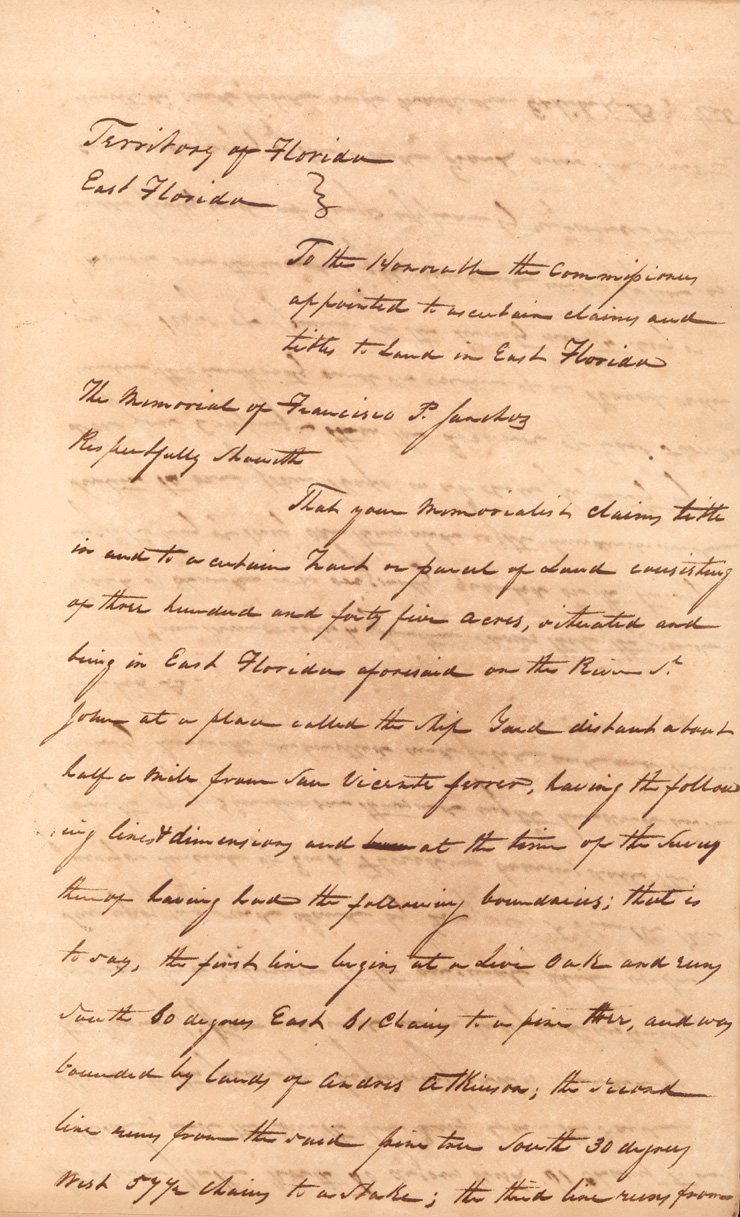 Territory of Florida
East Florida }
To the Honorable the Commissioners
appointed to ascertain claims and
titles to Land in East Florida
The Memorial of Francisco P. Sanchez
Respectfully Sheweth
That your Memorialist claims title
in and to a certain Tract or parcel of Land consisting
of three hundred and forty five acres, situated and
being in East Florida aforesaid on the River St
John at a place called the Ship Yard distant about
half a mile from San Vicente ferrer, having the follow
ing lines & dimensions and at the time of the Survey
thereof having had the following boundaries; that is
to say, the first line begins at a Live Oak and runs
South 60 degrees East 61 Chains to a pine tree, and was
bounded by lands of Andres Atkinson; the second
line runs from the said pine tree South 30 degrees
West 57½ chains to a Stake; the third line runs from